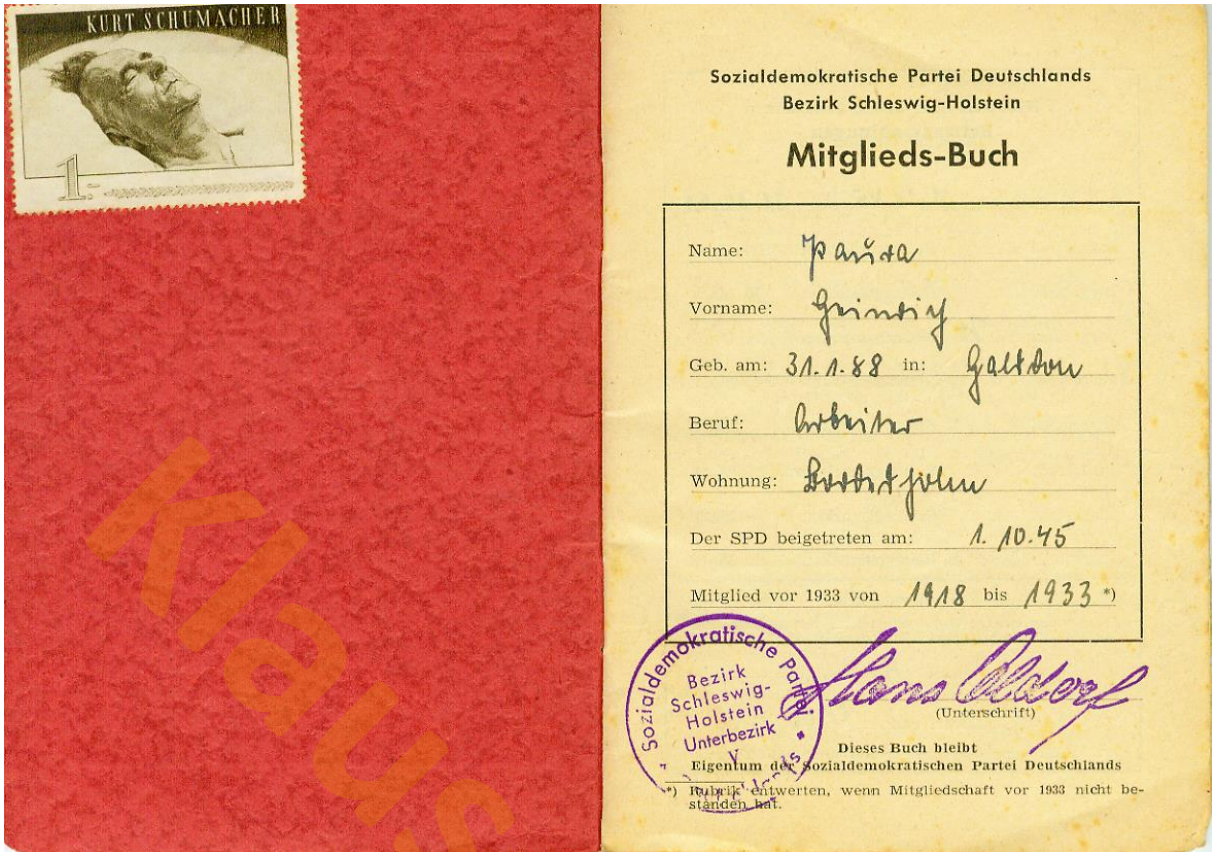 KURT SCHUMACHER
1.-
Sozialdemokratische Partei Deutschlands
Bezirk Schleswig-Holstein
Mitglieds-Buch
Name: Paura
Vorname: Heinrich
Geb. am: 31.1.88 in:
Beruf: Arbeiter
Wohnung: Bordesholm
Der SPD beigetreten am: 1.10.45
Mitglied vor 1933 von 1918 bis 1933 *)
Sozialdemokratische Partei
Bezirk
Schleswig-
Holstein
Unterbezirk
V
Hans
(Unterschrift)
Dieses Buch bleibt
Eigentum der Sozialdemokratischen Partei Deutschlands
*) Rubrik entwerten, wenn Mitgliedschaft vor 1933 nicht be-
standen hat.
Klaus